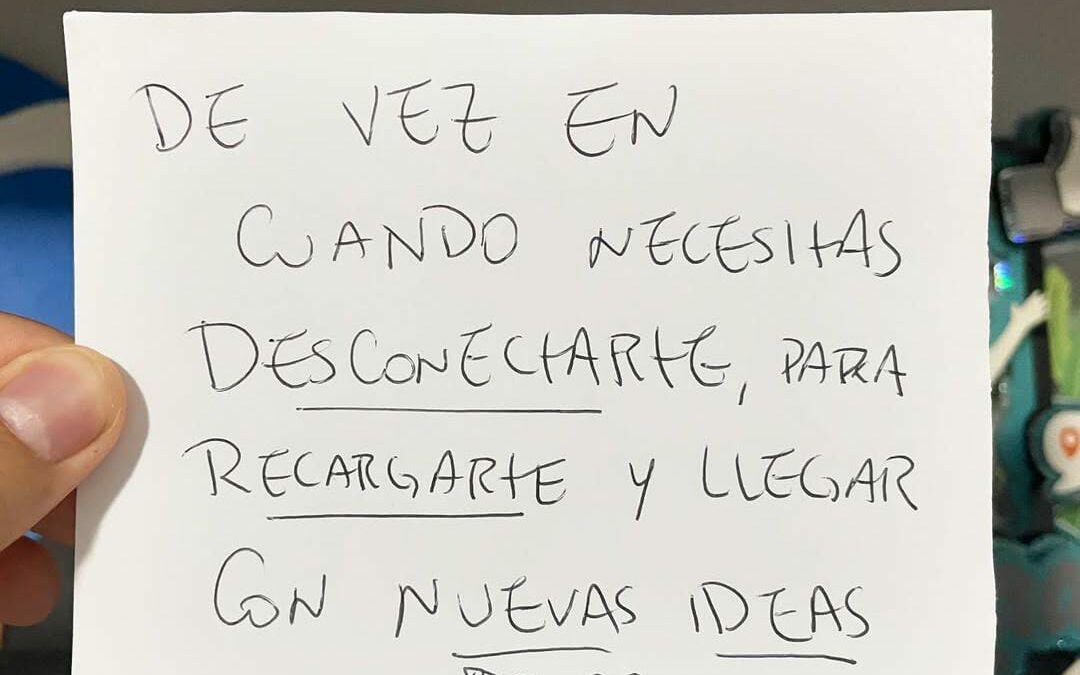 DE VEZ EN
CUANDO NECESITAS
DESCONECTARTE, PARA
RECARGARTE Y LLEGAR
CON NUEVAS IDEAS